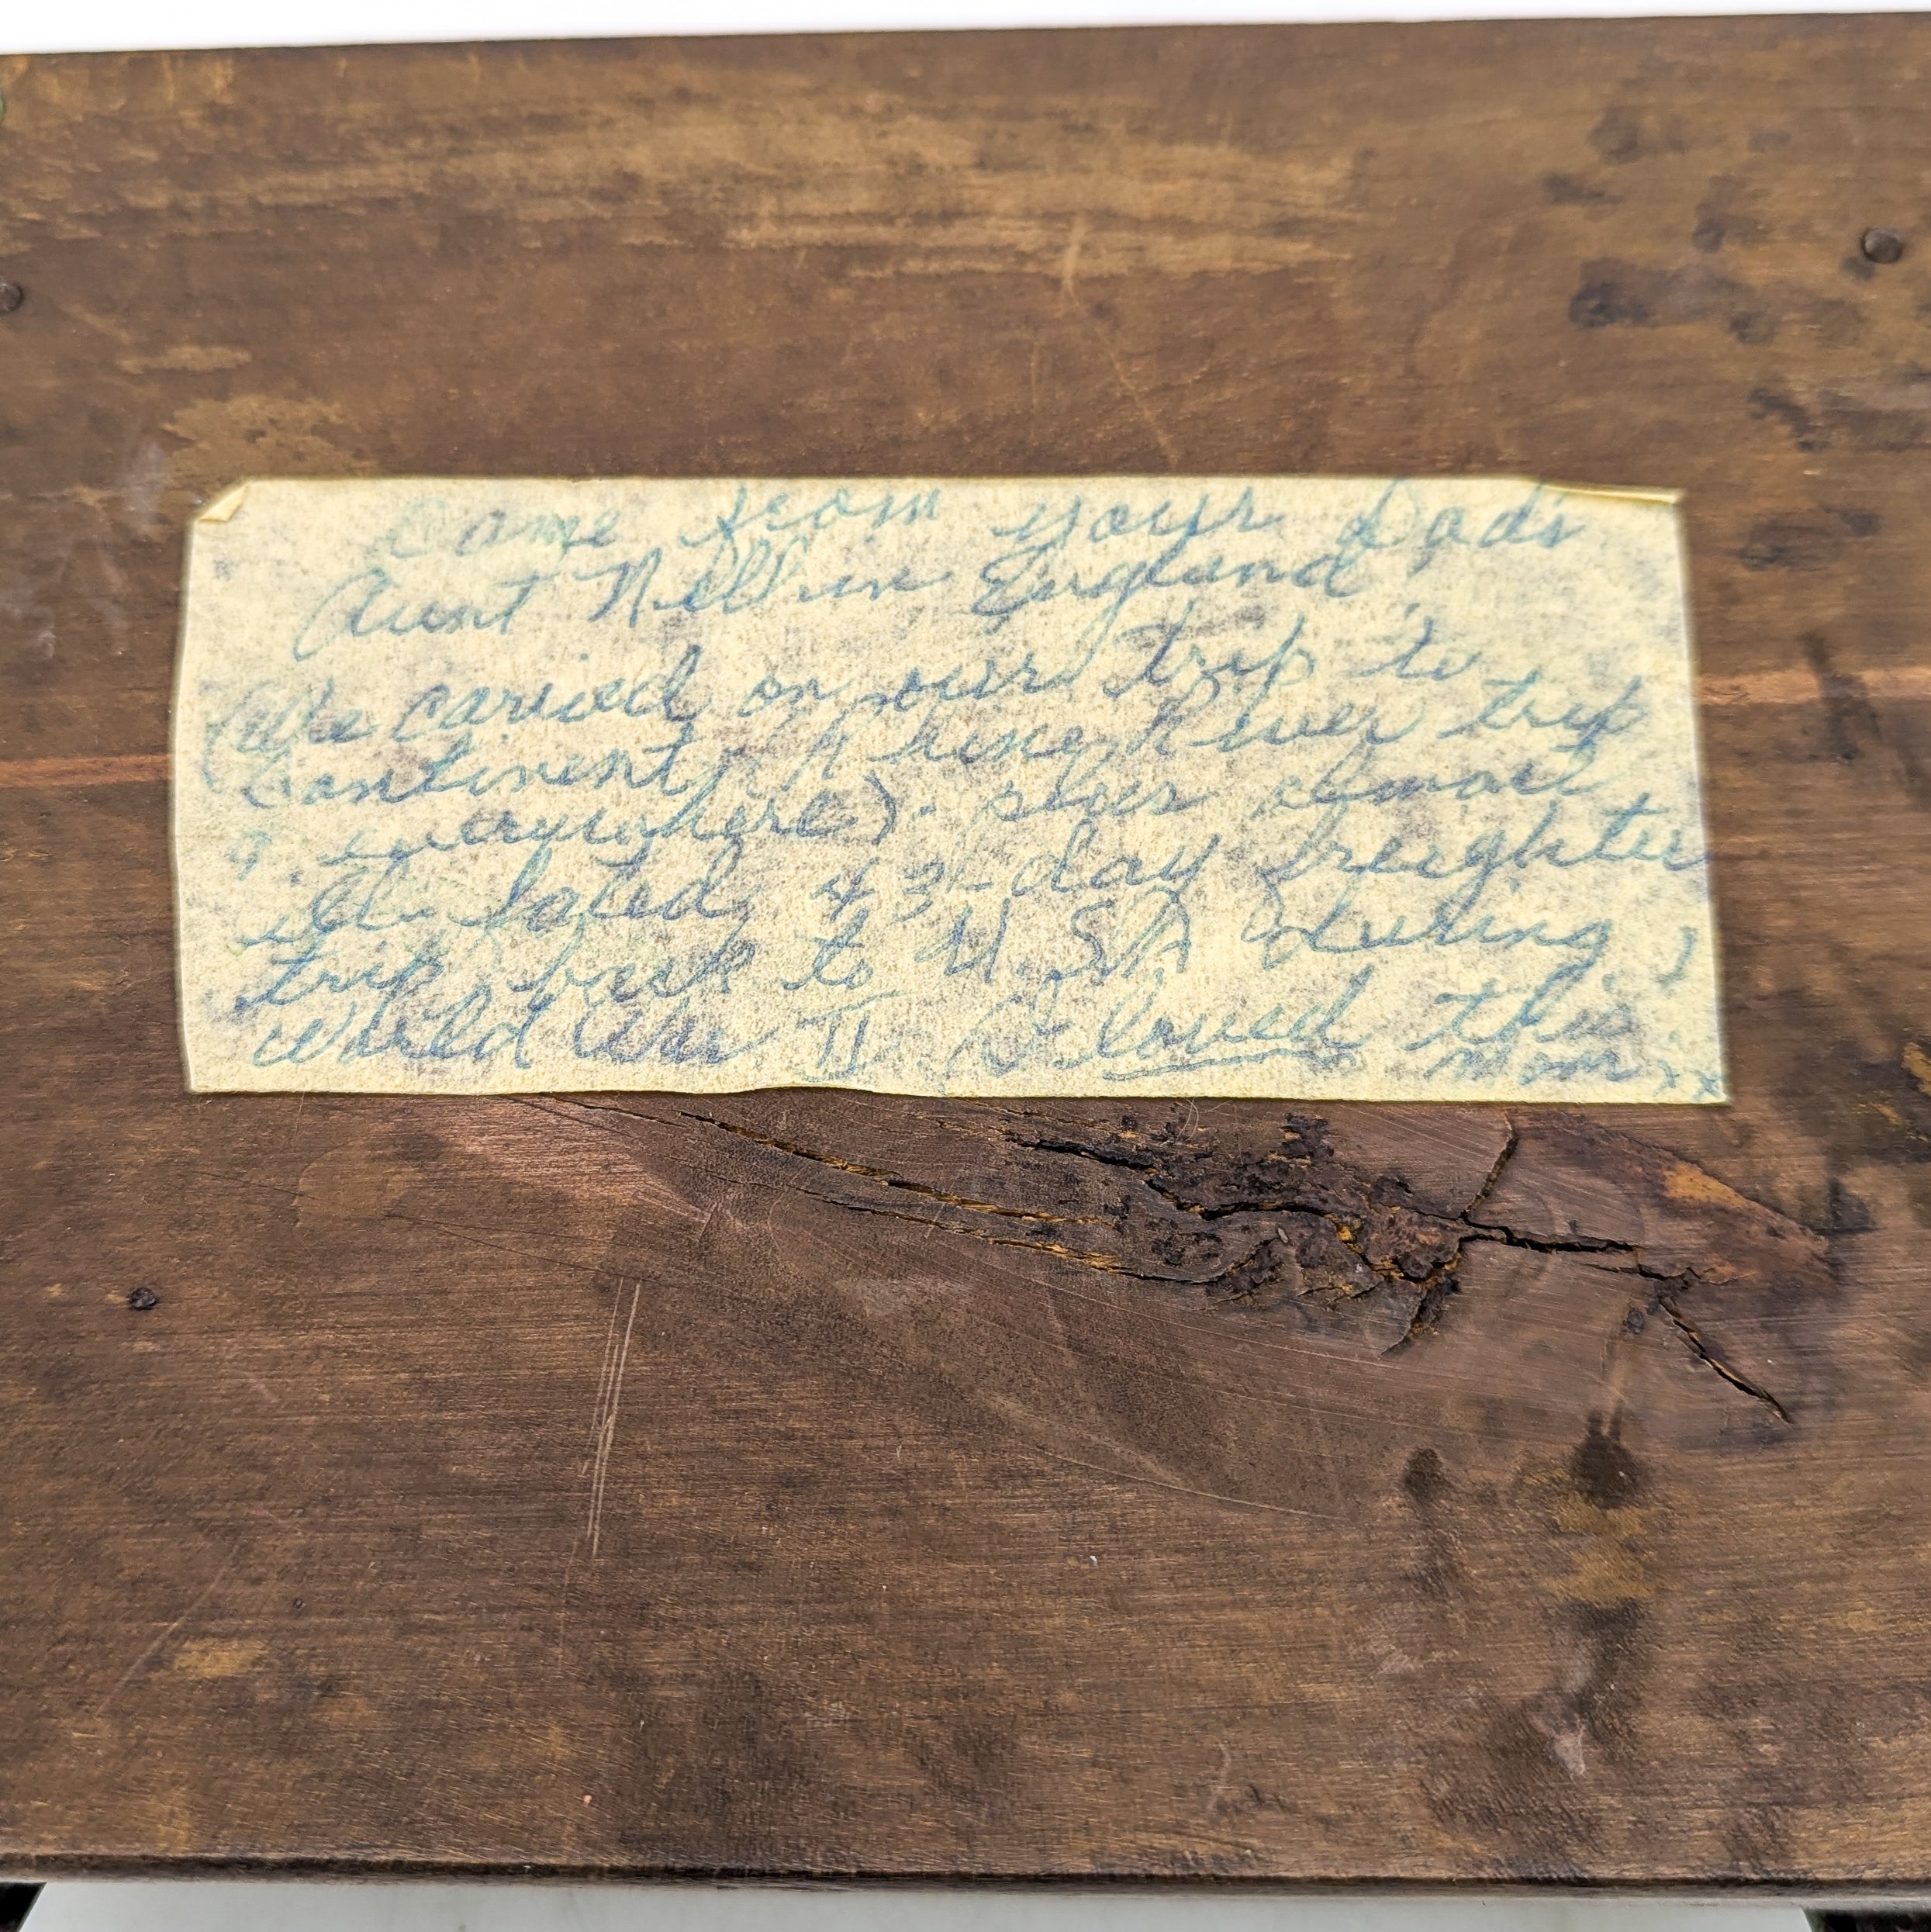 Came from your Dad's
Aunt Nell in England
(We carried on our trip to
Continent, Rhine River trip
& everywhere) - plus almost
ill-fated, 43-day freighter
trip back to U.S.A during
World War II. (I loved this.)
Mom xx